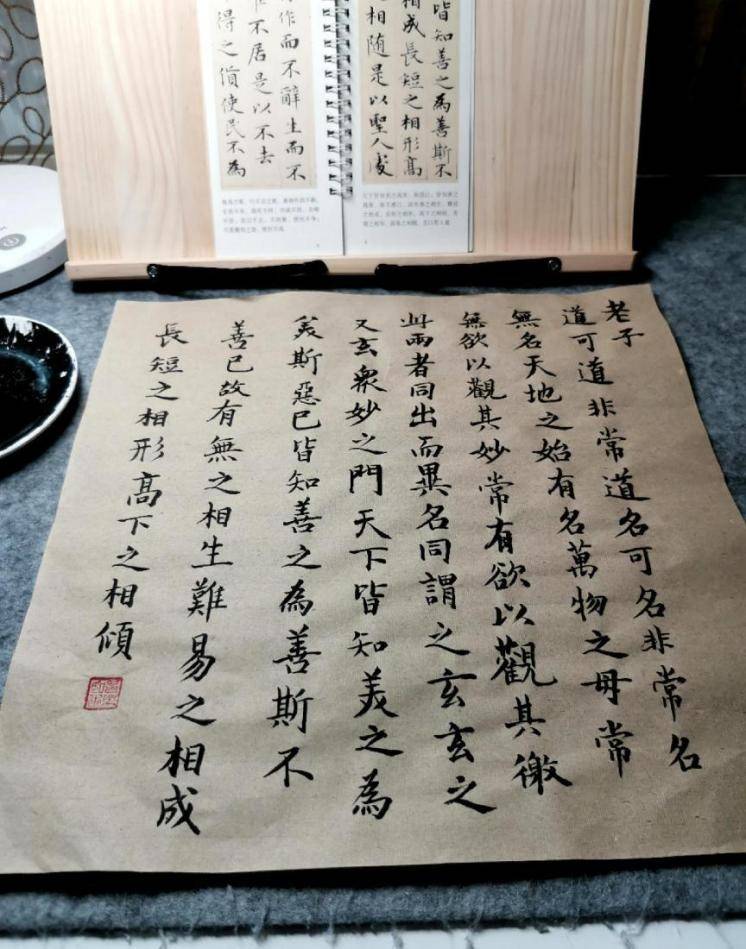 皆知善之為善斯不
相成長短之相形高
相隨是以聖人處
作而不辭生而不
不居是以不去
得之貨使民不為
老子
道可道非常道名可名非常名
無名天地之始有名萬物之母常
無欲以觀其妙常有欲以觀其徼
此兩者同出而異名同謂之玄玄之
又玄衆妙之門天下皆知美之為
美斯惡已皆知善之為善斯不
善已故有無之相生難易之相成
長短之相形高下之相傾